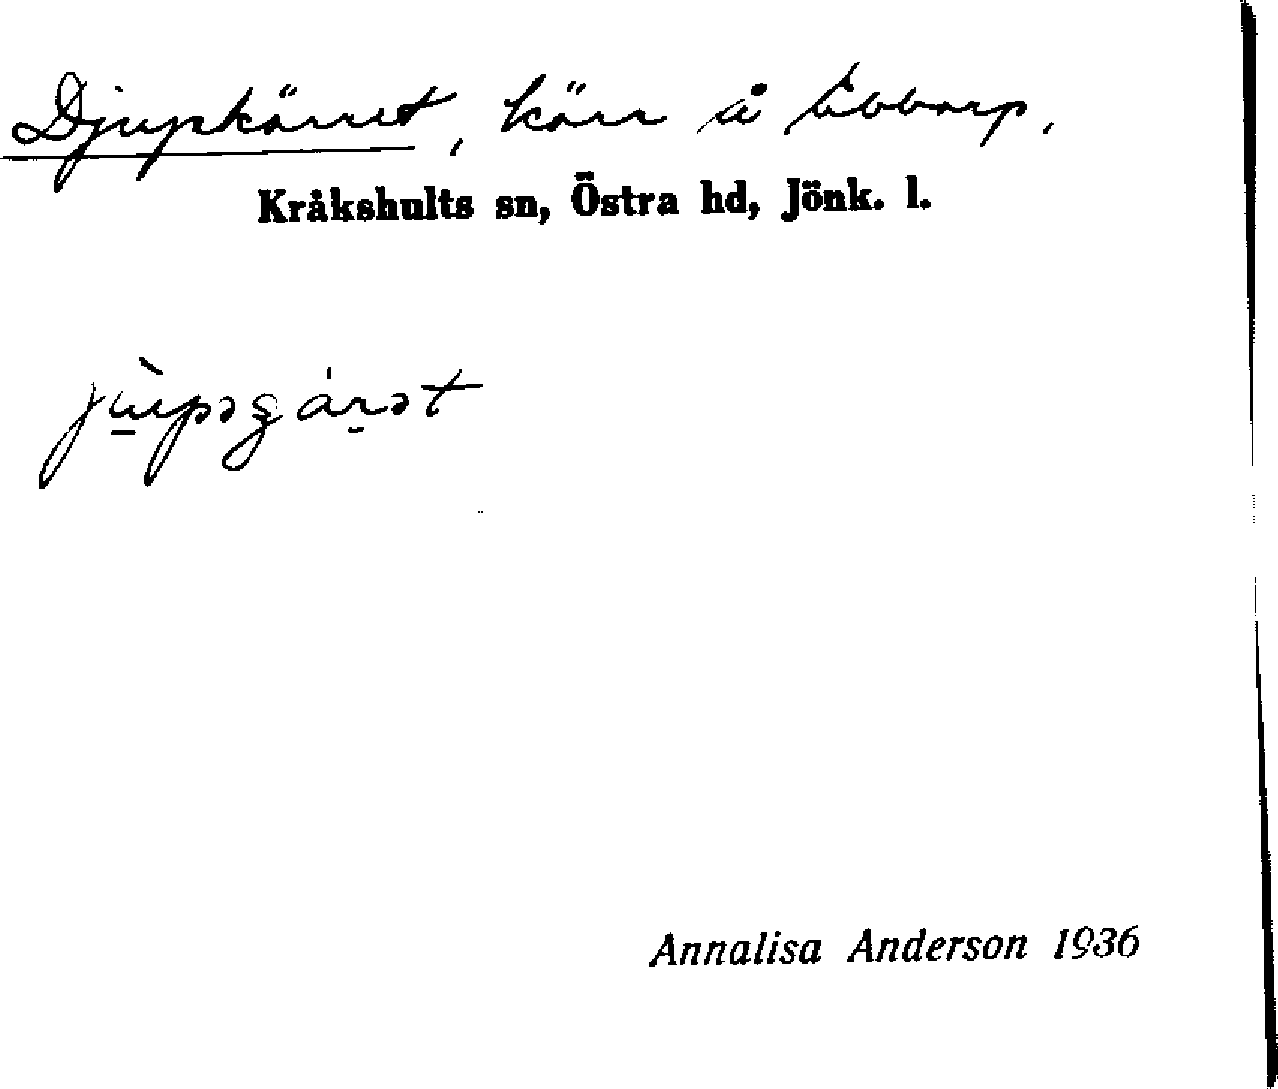 Djupkärret, kärr å Åbborp,
Kråkshults sn, Östra hd, Jönk. l.
Annalisa Anderson 1936